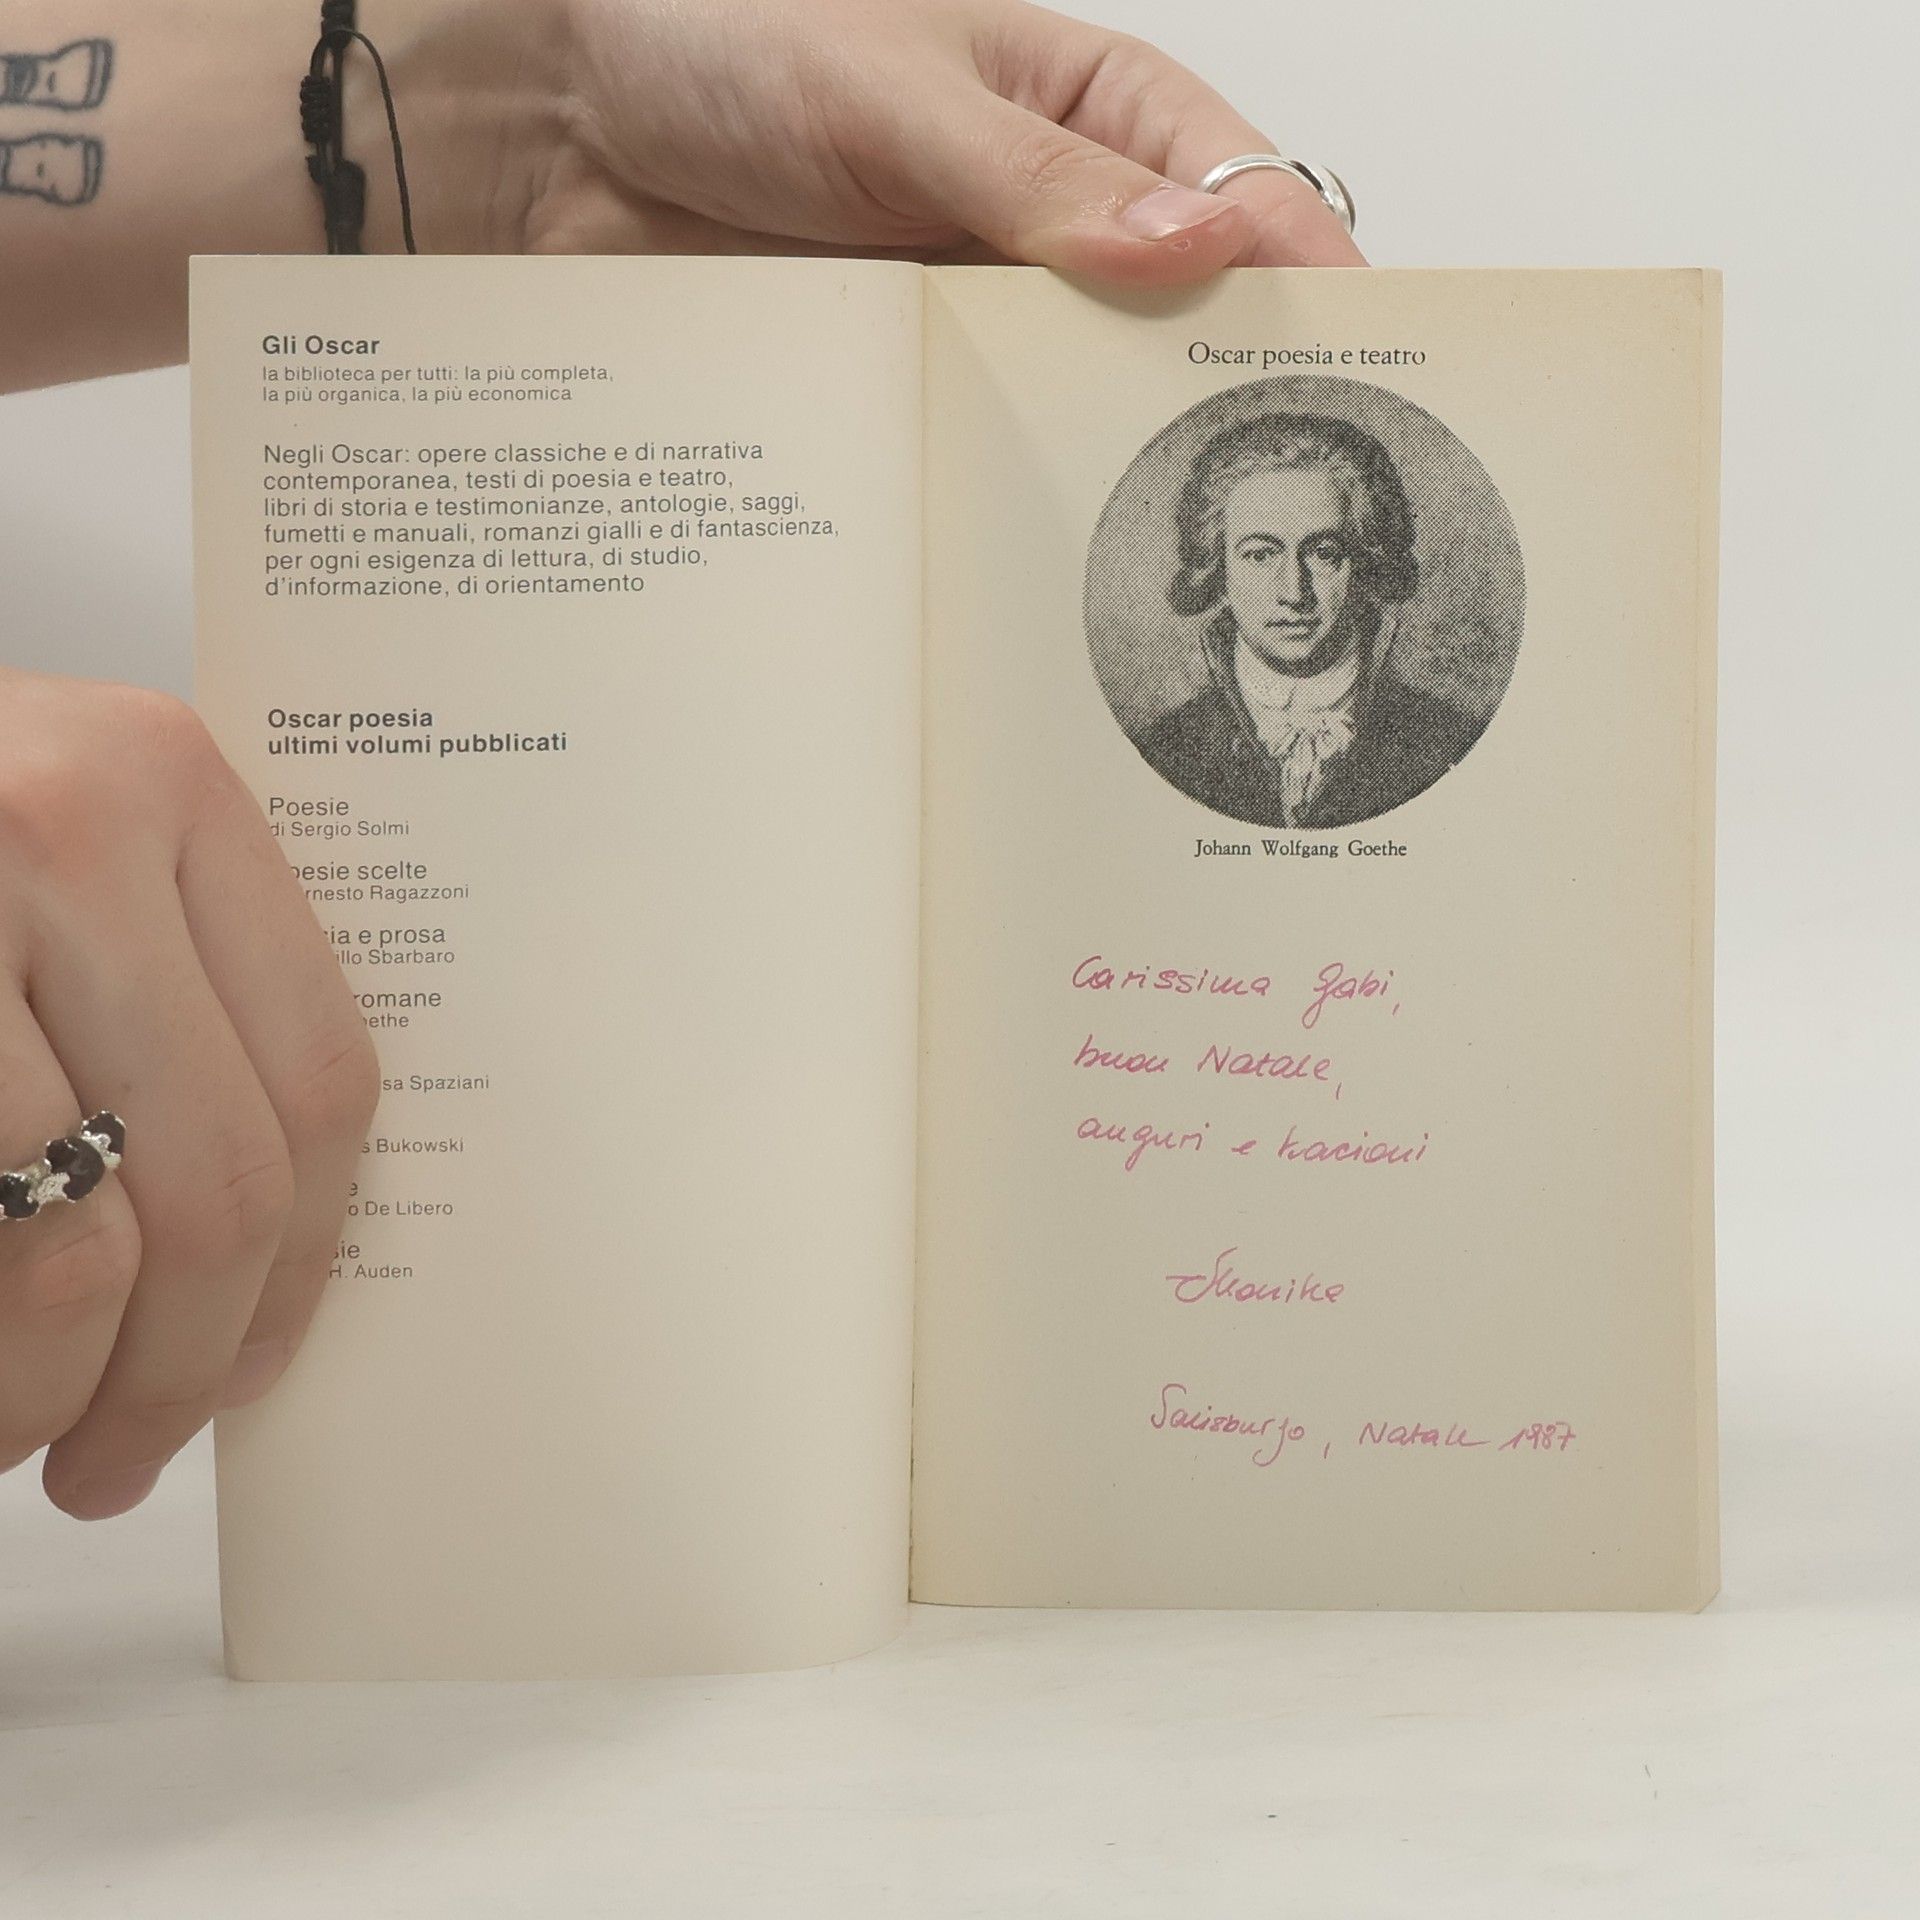 Gli Oscar
la biblioteca per tutti: la più completa,
la più organica, la più economica
Negli Oscar: opere classiche e di narrativa
contemporanea, testi di poesia e teatro,
libri di storia e testimonianze, antologie, saggi,
fumetti e manuali, romanzi gialli e di fantascienza,
per ogni esigenza di lettura, di studio,
d'informazione, di orientamento
Oscar poesia
ultimi volumi pubblicati
Poesie
di Sergio Solmi
scelte
Ragazzoni
e prosa
Sbarbaro
romane
Spaziani
Bukowski
De Libero
H. Auden
Oscar poesia e teatro
Johann Wolfgang Goethe
Carissima Gabi,
buon Natale,
auguri e bacioni
Monika
Salisburgo, Natale 1987